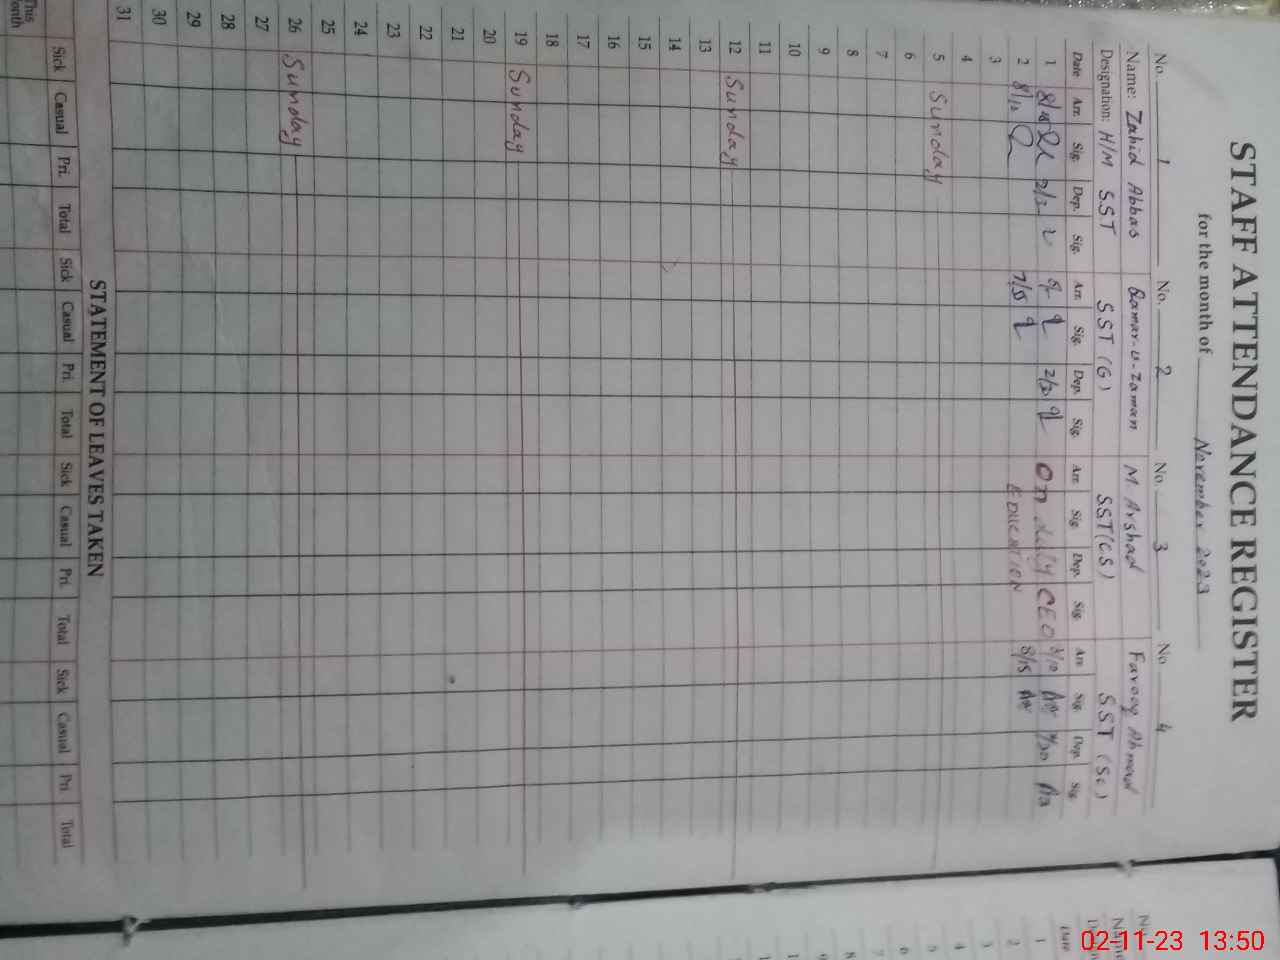 STAFF ATTENDANCE REGISTER
for the month of November 2023
No. 1 No. 2 No. 3 No. 4
Name: Zahid Abbas Qamar-u-Zaman M. Arshad Farooq Ahmad
Designation: H/M SST SST (G) SST (CS) SST (Sc)
Date Arr. Sig. Dep. Sig. Arr. Sig. Dep. Sig. Arr. Sig. Dep. Sig. Arr. Sig. Dep. Sig.
1 2/30 On duty CEO 8/10
2 8/10 7/55 EDUCATION 8/15
3
4
5 Sunday
6
7
8
9
10
11
12 Sunday
13
14
15
16
17
18
19 Sunday
20
21
22
23
24
25
26 Sunday
27
28
29
30
31
STATEMENT OF LEAVES TAKEN
Sick Casual Pri. Total Sick Casual Pri. Total Sick Casual Pri. Total Sick Casual Pri Total
This
onth
Date
1
2
3
4
5
6
7
8
02-11-23 13:50